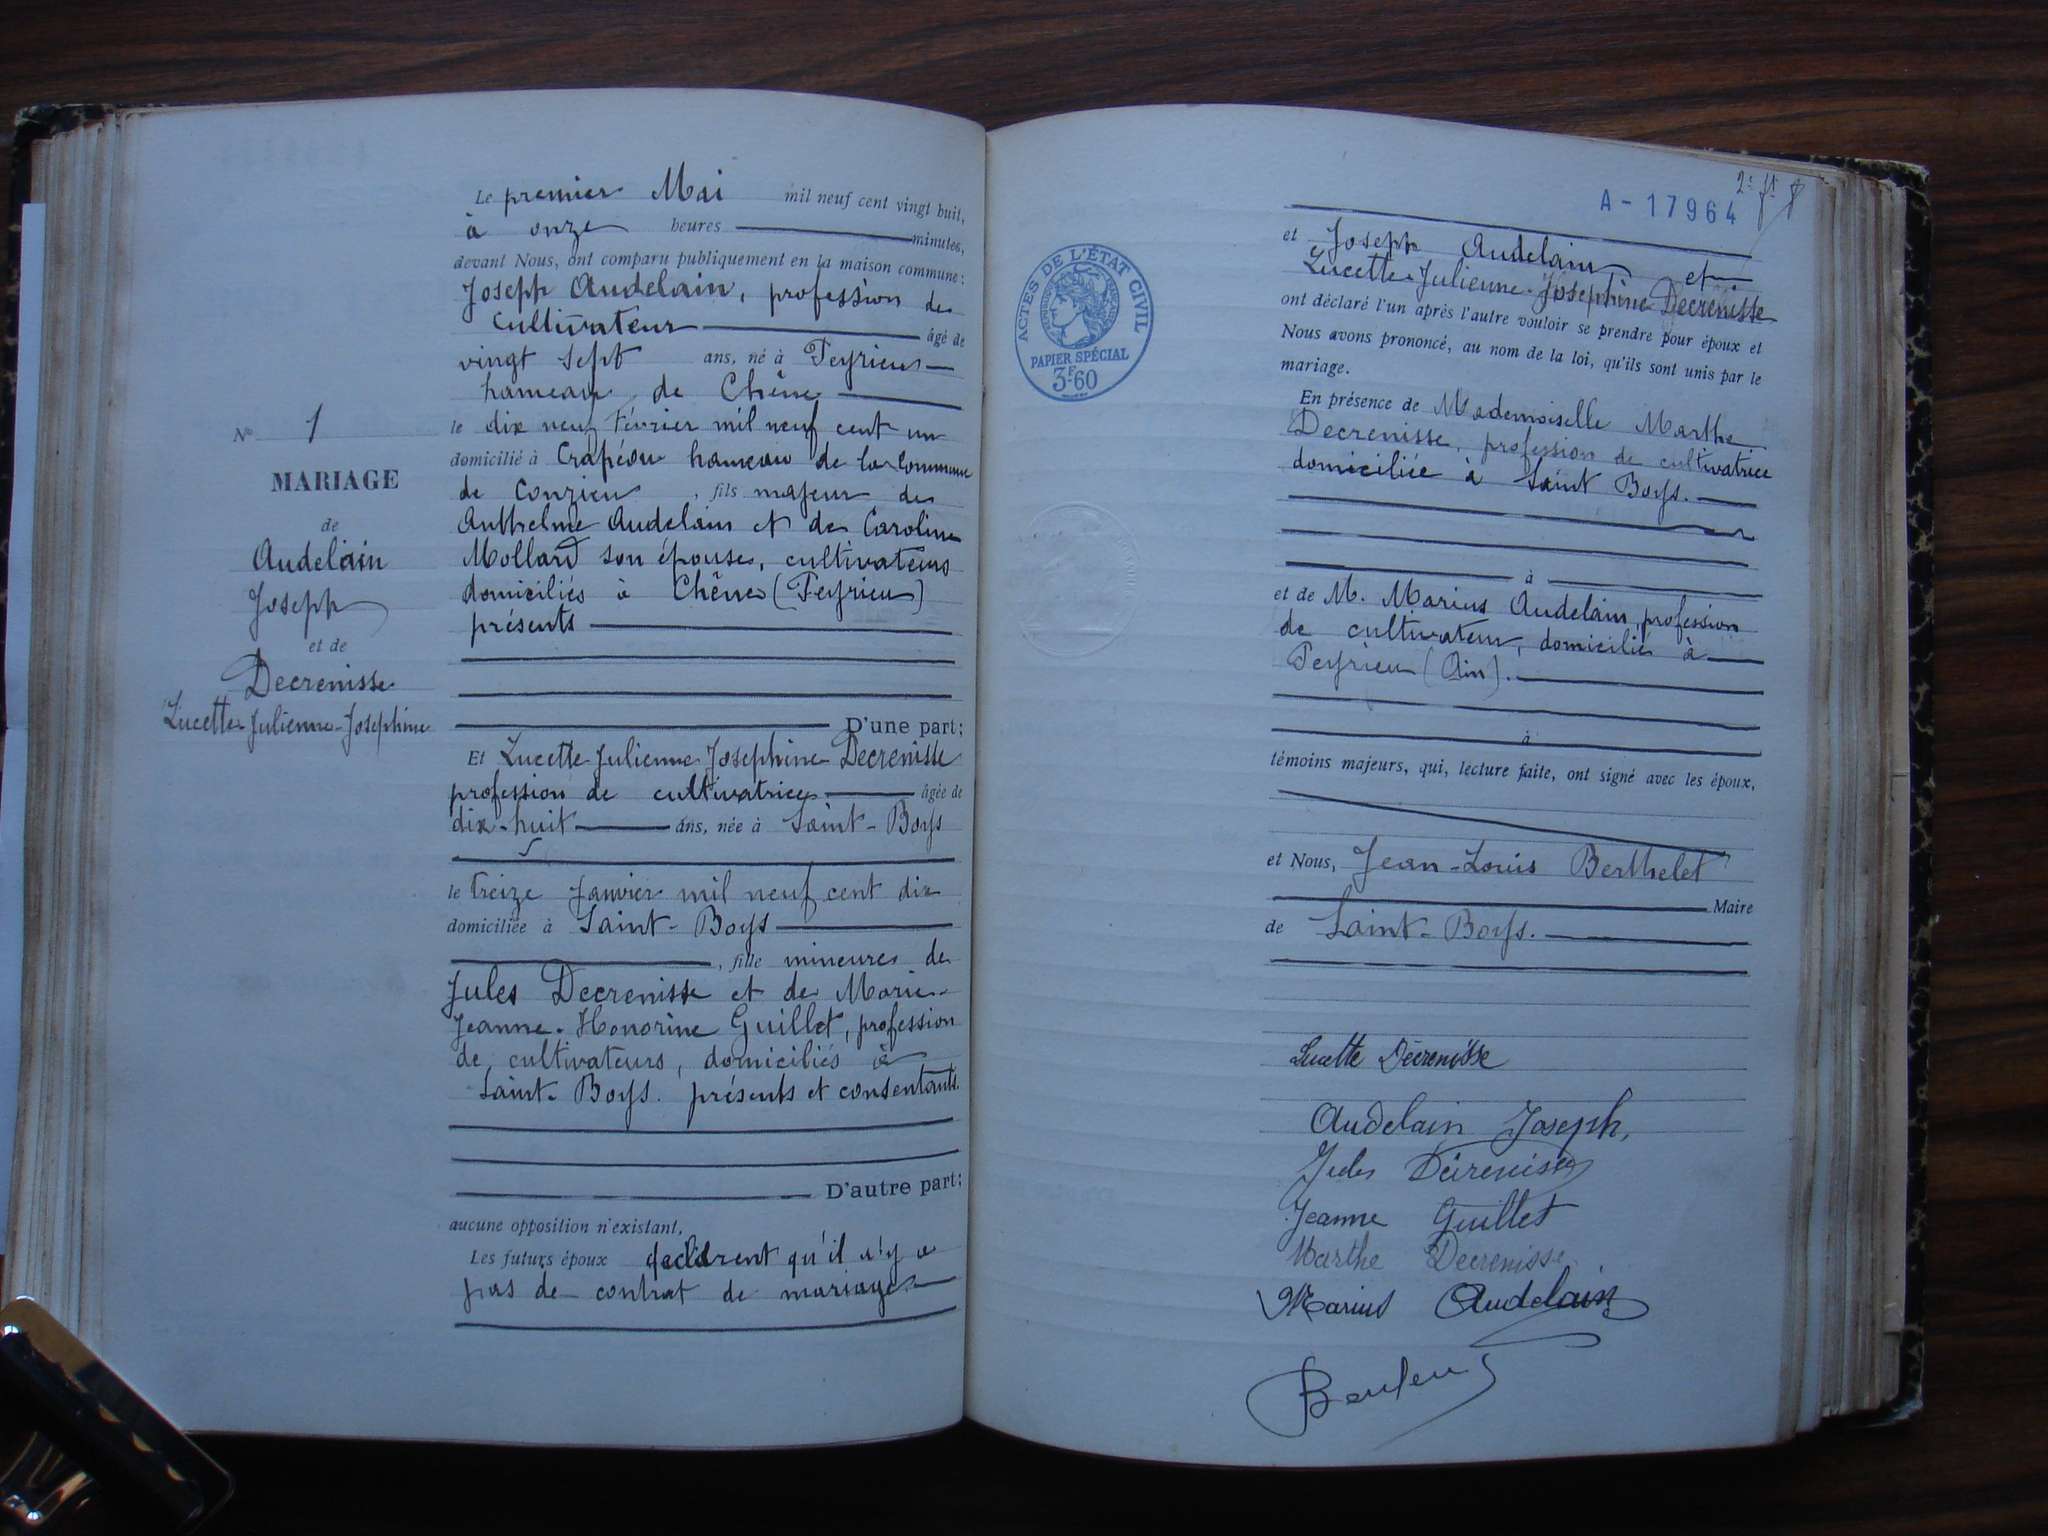 Le premier Mai mil neuf cent vingt huit,
à onze heures minutes,
devant Nous, ont comparu publiquement en la maison commune:
Joseph Audelain, profession de
cultivateur âgé de
vingt sept ans, né à Peyrieu
hameau de Chêne
le dix neuf Février mil neuf cent un
domicilié à Crapéou hameau de la Commune
de Conzieu, fils majeur de
Anthelme Audelain et de Caroline
Mollard son épouse, cultivateurs
domiciliés à Chêne (Peyrieu)
présents
D'une part;
Et Lucette-Julienne-Josephine Decrenisse
profession de cultivatrice âgée de
dix-huit ans, née à Saint-Boys
le treize Janvier mil neuf cent dix
domiciliée à Saint-Boys
, fille mineure de
Jules Decrenisse et de Marie-
Jeanne-Honorine Guillet, profession
de cultivateurs, domiciliés à
Saint-Boys. présents et consentants.
D'autre part;
aucune opposition n'existant,
Les futurs époux déclarent qu'il n'y a
pas de contrat de mariage
No 1
MARIAGE
de
Audelain
Joseph
et de
Decrenisse
Lucette-Julienne-Josephine
A-17964
ACTES DE L'ÉTAT CIVIL
PAPIER SPÉCIAL
3F60
et Joseph Audelain, et
Lucette-Julienne-Josephine Decrenisse
ont déclaré l'un après l'autre vouloir se prendre pour époux et
Nous avons prononcé, au nom de la loi, qu'ils sont unis par le
mariage.
En présence de Mademoiselle Marthe
Decrenisse, profession de cultivatrice
domiciliée à Saint Boys.
à
et de M. Marius Audelain, profession
de cultivateur, domicilié à
Peyrieu (Ain).
à
témoins majeurs, qui, lecture faite, ont signé avec les époux,
et Nous, Jean-Louis Berthelet
Maire
de Saint-Boys.
Lucette Décrenisse
Audelain Joseph,
Jules Décrenisse
Jeanne Guillet
Marthe Decrenisse
Marius Audelain